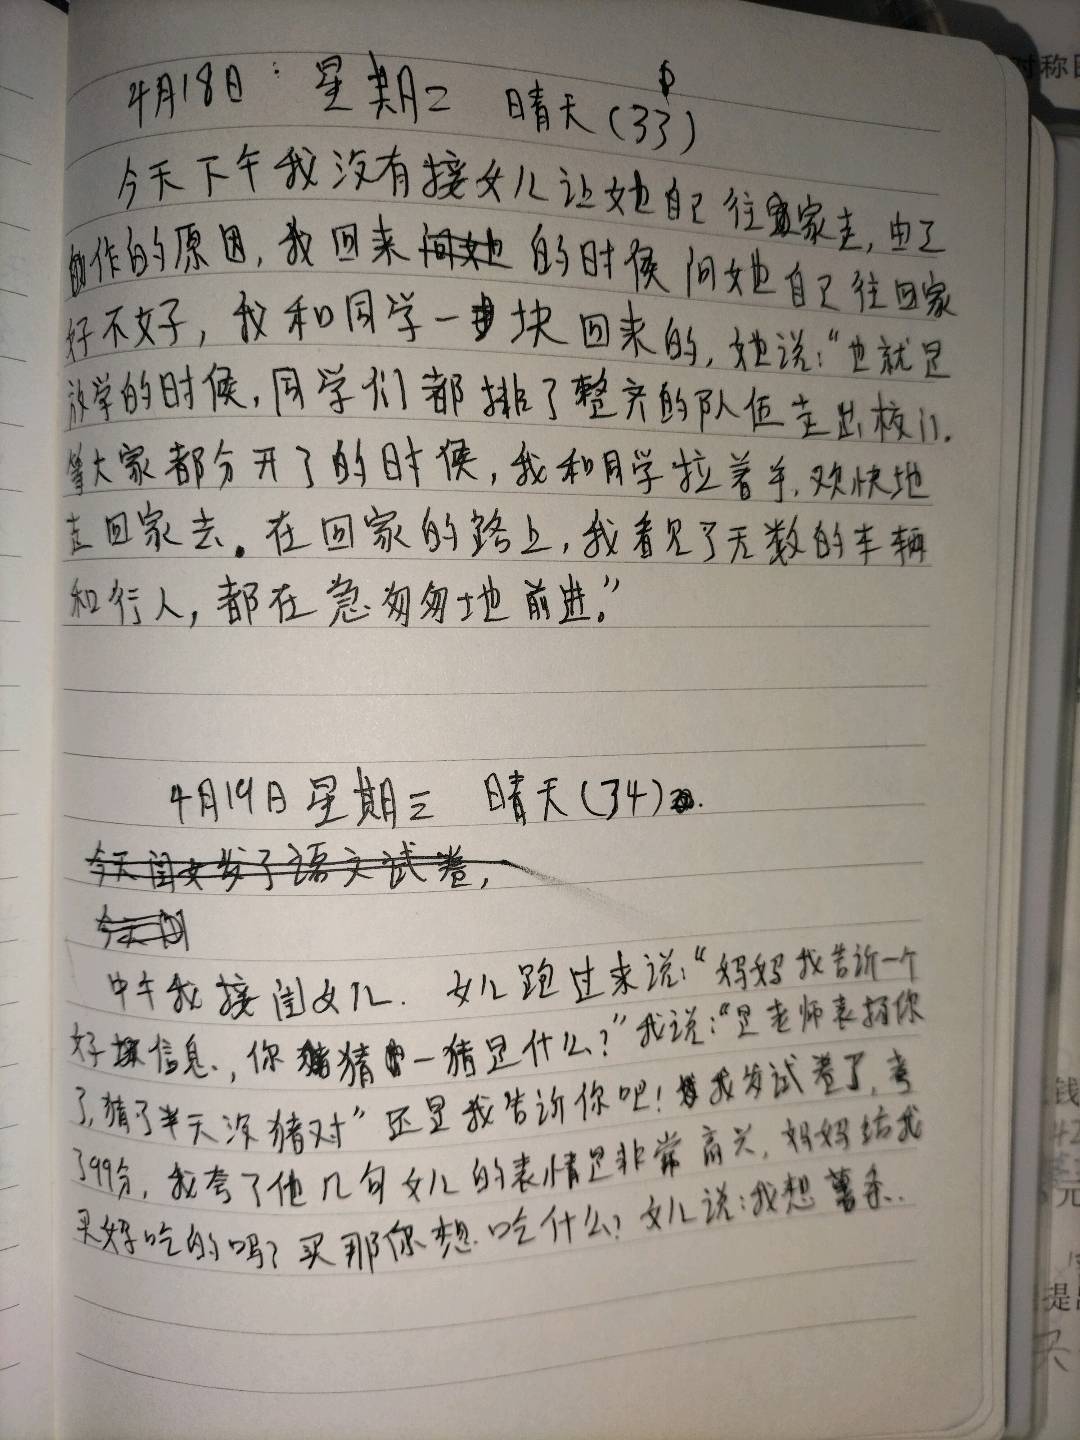 4月18日 星期二 晴天(33)
今天下午我没有接女儿让她自己往家走,由工
作的原因,我回来的时候问她自己往回家
好不好,我和同学一块回来的,她说:“也就是
放学的时候,同学们都排了整齐的队伍走出校门.
等大家都分开了的时候,我和同学拉着手,欢快地
走回家去。在回家的路上,我看见了无数的车辆
和行人,都在急匆匆地前进。”
4月19日星期三 晴天(34)
今天闺女发了语文试卷,
今天闺
中午我接闺女儿.女儿跑过来说:“妈妈我告诉一个
好信息.,你猜一猜是什么?”我说:“是老师表扬你
了,猜了半天没猜对”还是我告诉你吧!我发试卷了,考
了99分,我夸了他几句女儿的表情是非常高兴,妈妈给我
买好吃的吗?买那你想吃什么?女儿说:我想薯条..
对称
钱
元
提